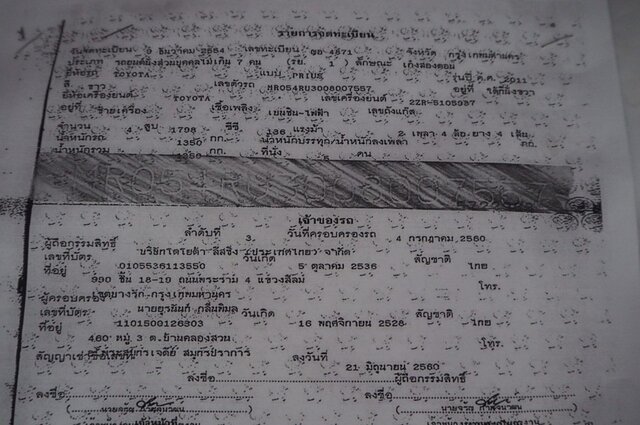 รายการจดทะเบียน
วันจดทะเบียน 9 ธันวาคม 2554 เลขทะเบียน ฆอ 4671 จังหวัด กรุงเทพมหานคร
ประเภท รถยนต์นั่งส่วนบุคคลไม่เกิน 7 คน (รย. 1 ) ลักษณะ เก๋งสองตอน
ยี่ห้อรถ TOYOTA แบบ PRIUS รุ่นปี ค.ศ. 2011
สี ขาว เลขตัวรถ MR054RU3008007557 อยู่ที่
ยี่ห้อเครื่องยนต์ TOYOTA เลขเครื่องยนต์ 2ZR-5105937
อยู่ที่ ซ้ายเครื่อง เชื้อเพลิง เบนซิน-ไฟฟ้า เลขถังแก๊ส
จำนวน 4 สูบ 1798 ซีซี 136 แรงม้า 2 เพลา 4 ล้อ ยาง 4 เส้น
น้ำหนักรถ 1350 กก. น้ำหนักบรรทุก/น้ำหนักลงเพลา กก.
น้ำหนักรวม 1350 กก. ที่นั่ง 5 คน
เจ้าของรถ
ลำดับที่ 3 วันที่ครอบครองรถ 4 กรกฎาคม 2560
ผู้ถือกรรมสิทธิ์ บริษัทโตโยต้า ลีสซิ่ง (ประเทศไทย) จำกัด
เลขที่บัตร 0105536113550 วันเกิด 5 ตุลาคม 2536 สัญชาติ ไทย
ที่อยู่ 990 ชั้น 18-19 ถนนพระราม 4 แขวงสีลม โทร.
เขตบางรัก กรุงเทพมหานคร
ผู้ครอบครอง
เลขที่บัตร 1101500126303 วันเกิด 16 พฤศจิกายน 2528 สัญชาติ ไทย
ที่อยู่ 460 หมู่ 3 ต.บ้านคลองสวน โทร.
อ.พระสมุทรเจดีย์ สมุทรปราการ
สัญญาเช่าซื้อเลขที่ ลงวันที่ 21 มิถุนายน 2560
ลงชื่อ ผู้ถือกรรมสิทธิ์
ลงชื่อ ลงชื่อ